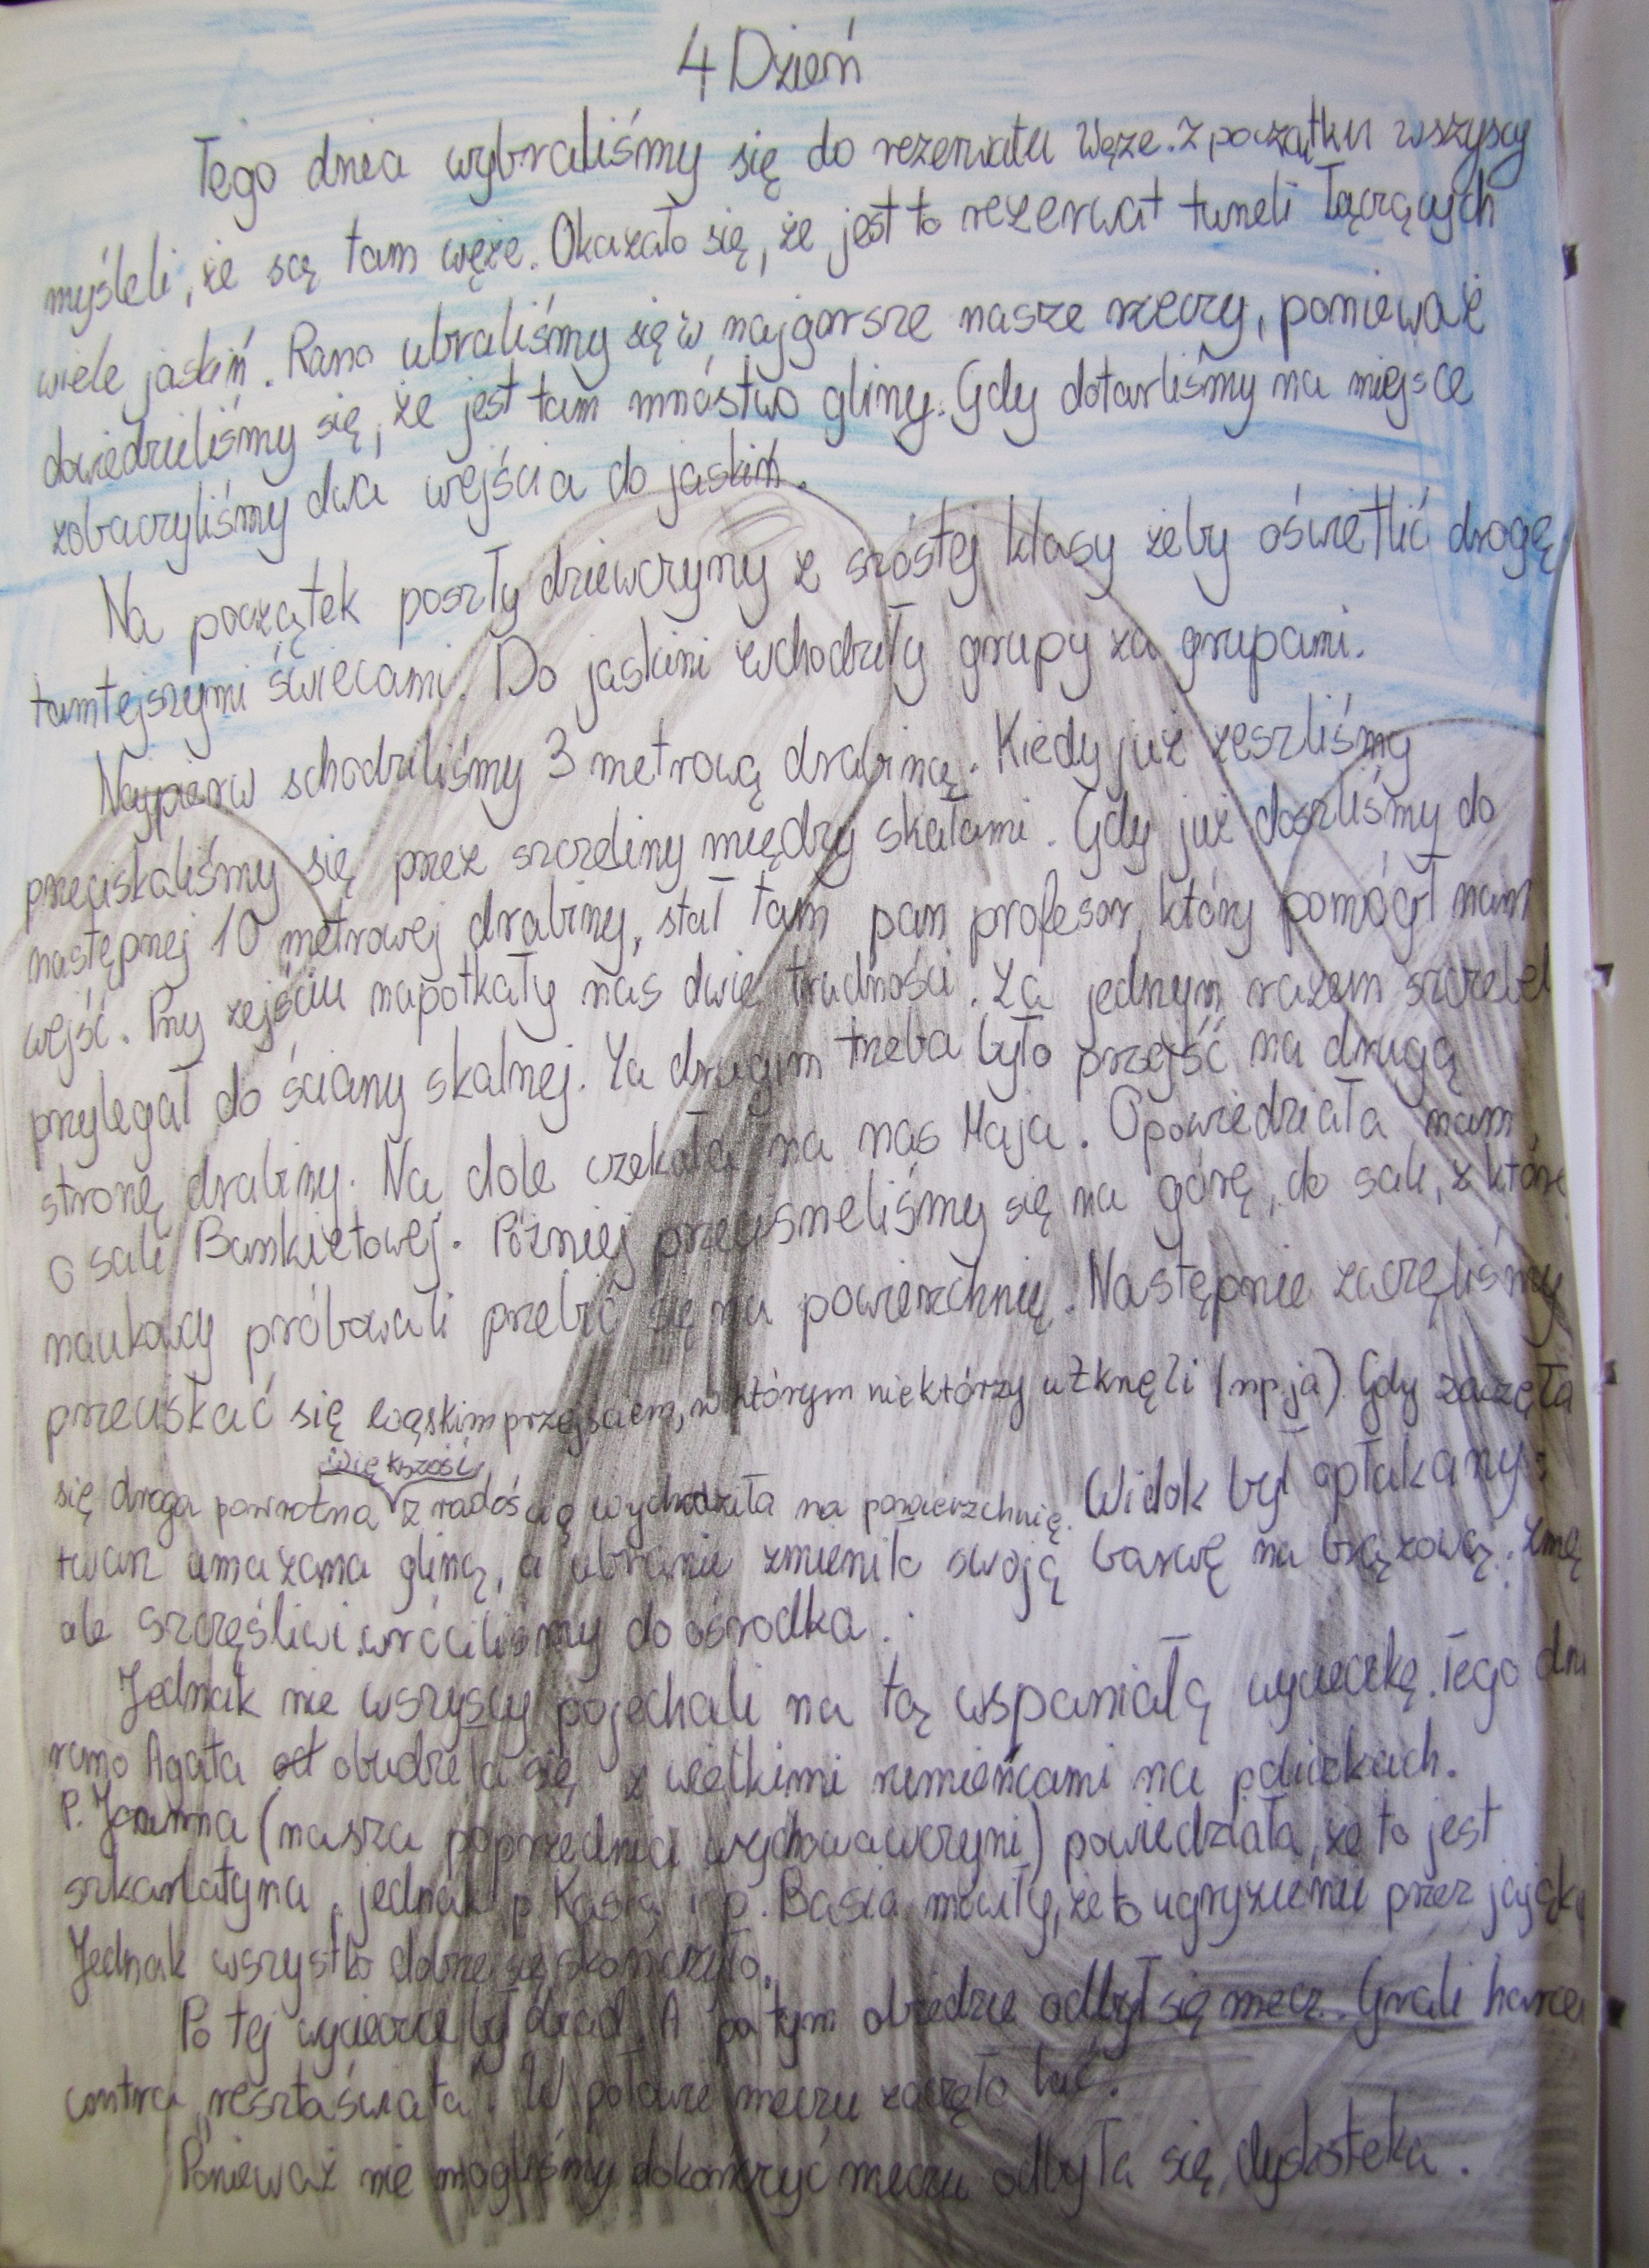 4 Dzień
Tego dnia wybraliśmy się do rezerwatu Węże. Z początku wszyscy
myśleli, że są tam węże. Okazało się, że jest to rezerwat tuneli łączących
wiele jaskiń. Rano ubraliśmy się w najgorsze nasze rzeczy, ponieważ
dowiedzieliśmy się, że jest tam mnóstwo gliny. Gdy dotarliśmy na miejsce
zobaczyliśmy dwa wejścia do jaskiń.
Na początek poszły dziewczyny z szóstej klasy żeby oświetlić drogę
tamtejszymi świecami. Do jaskini wchodziły grupy za grupami.
Najpierw schodziliśmy 3 metrową drabiną. Kiedy już zeszliśmy
przeciskaliśmy się przez szczeliny między skałami. Gdy już doszliśmy do
następnej 10 metrowej drabiny, stał tam pan profesor, który pomógł nam
wejść. Przy zejściu napotkały nas dwie trudności. Za jednym razem szczebel
przylegał do ściany skalnej. Za drugim trzeba było przejść na drugą
stronę drabiny. Na dole czekała na nas Maja. Opowiedziała nam
o sali Bankietowej. Później przecisneliśmy się na górę, do sali, z które
naukowcy próbowali przebić się na powierzchnię. Następnie zaczęliśmy
przeciskać się wąskim przejściem, w którym niektórzy utknęli (np. ja). Gdy zaczęła
większość
się droga powrotna z radością wychodziła na powierzchnię. Widok był opłakany:
twarz umazana gliną, a ubranie zmieniło swoją barwę na brązową. Zmę
ale szczęśliwi wróciliśmy do ośrodka.
Jednak nie wszyscy pojechali na tą wspaniałą wycieczkę. Tego dni
rano Agata obudziła się z wielkimi rumieńcami na policzkach.
P. Joanna (nasza poprzednia wychowawczyni) powiedziała, że to jest
szkarlatyna, jednak p. Kasia i p. Basia mówiły, że to ugryzienie przez jająk
Jednak wszystko dobrze się skończyło.
Po tej wycieczce był obiad. A po tym obiedzie odbył się mecz. Grali harce
contra „reszta świata". W połowie meczu zaczęło lać.
Ponieważ nie mogliśmy dokończyć meczu odbyła się dyskoteka.